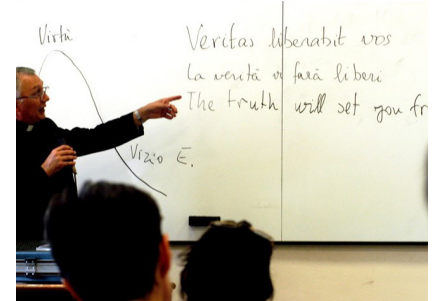 Virtù
Veritas liberabit vos
La verità vi farà liberi
The truth will set you fr
Vizio E.